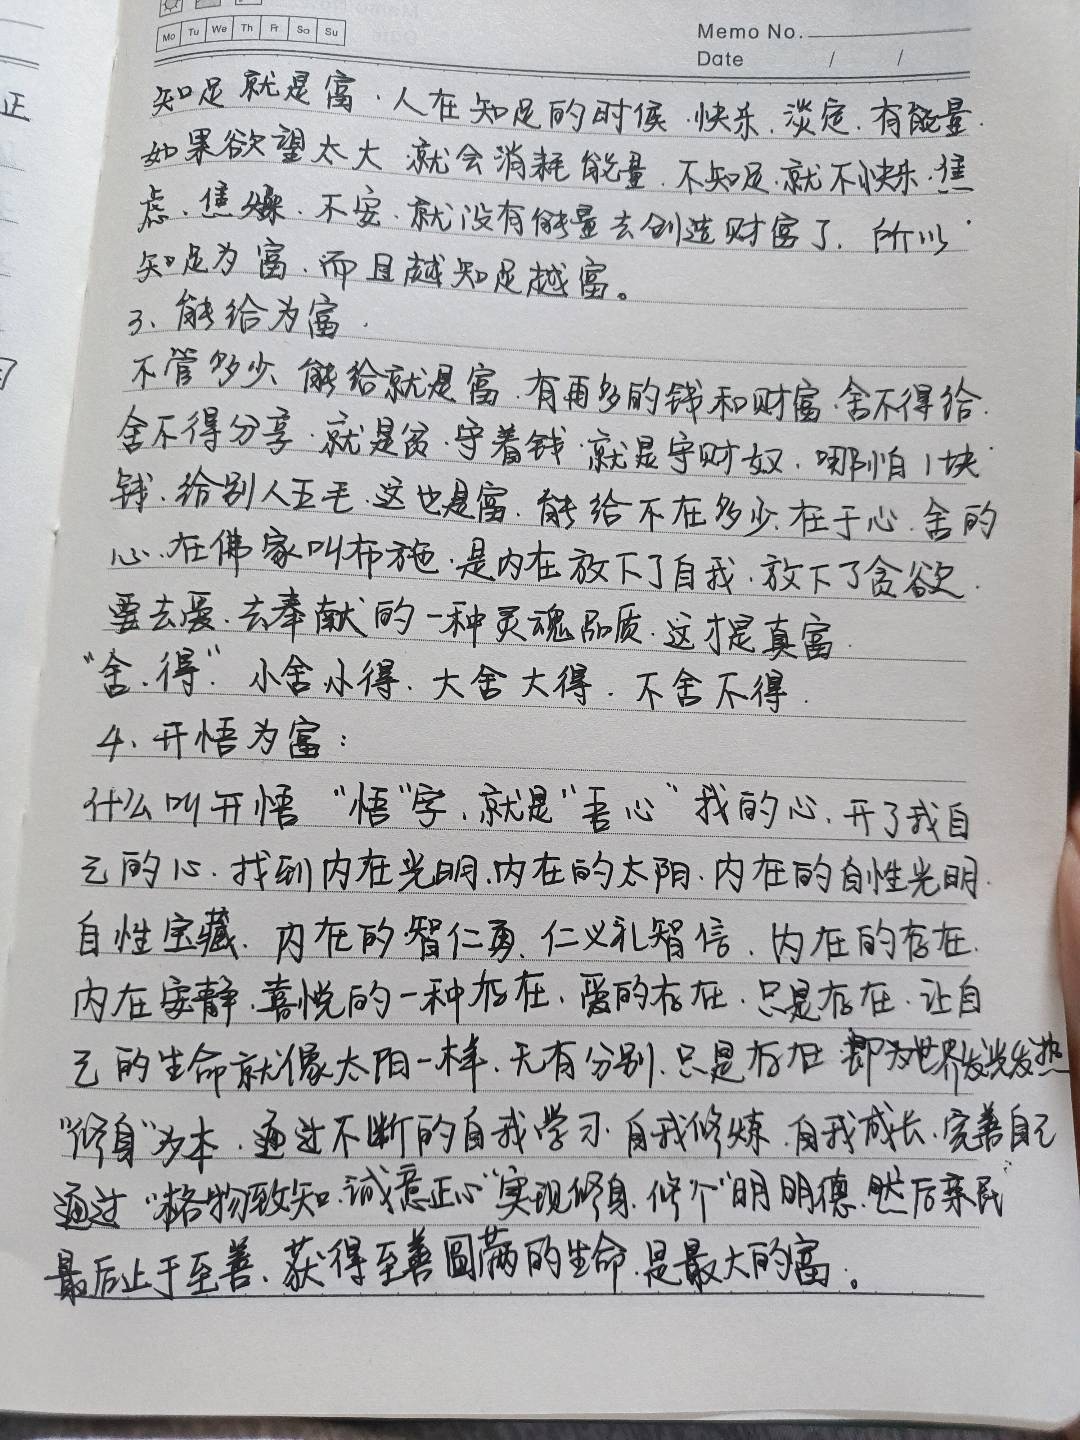 Mo Tu We Th Fr Sa Su
Memo No.
Date / /
知足就是富.人在知足的时候.快乐.淡定.有能量.
如果欲望太大 就会消耗能量.不知足.就不快乐.焦
虑.焦燥.不安.就没有能量去创造财富了.所以
知足为富.而且越知足越富。
3、能给为富.
不管多少.能给就是富.有再多的钱和财富.舍不得给.
舍不得分享.就是贫.守着钱.就是守财奴.哪怕1块
钱.给别人五毛.这也是富.能给不在多少.在于心.舍的
心.在佛家叫布施.是内在放下了自我.放下了贪欲.
要去爱.去奉献的一种灵魂品质.这才是真富.
“舍.得”.小舍小得.大舍大得.不舍不得.
4、开悟为富：
什么叫开悟 “悟”字.就是“吾心”我的心.开了我自
己的心.找到内在光明.内在的太阳.内在的自性光明.
自性宝藏.内在的智仁勇.仁义礼智信.内在的存在.
内在安静.喜悦的一种存在.爱的存在.只是存在.让自
己的生命就像太阳一样.无有分别.只是存在 即为世界发光发热
“修身”为本.通过不断的自我学习.自我修炼.自我成长.完善自己
通过“格物致知.诚意正心”实现修身.修个“明明德.然后亲民”
最后止于至善.获得至善圆满的生命.是最大的富。
正
习